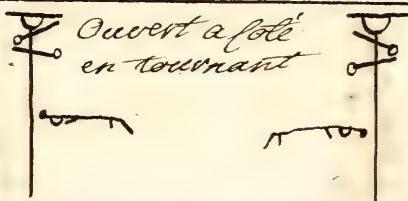 Ouvert a Coté
en tournant